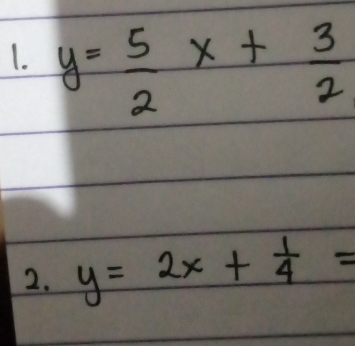 1. y = 5/2 x + 3/2
2. y = 2x + 1/4 =